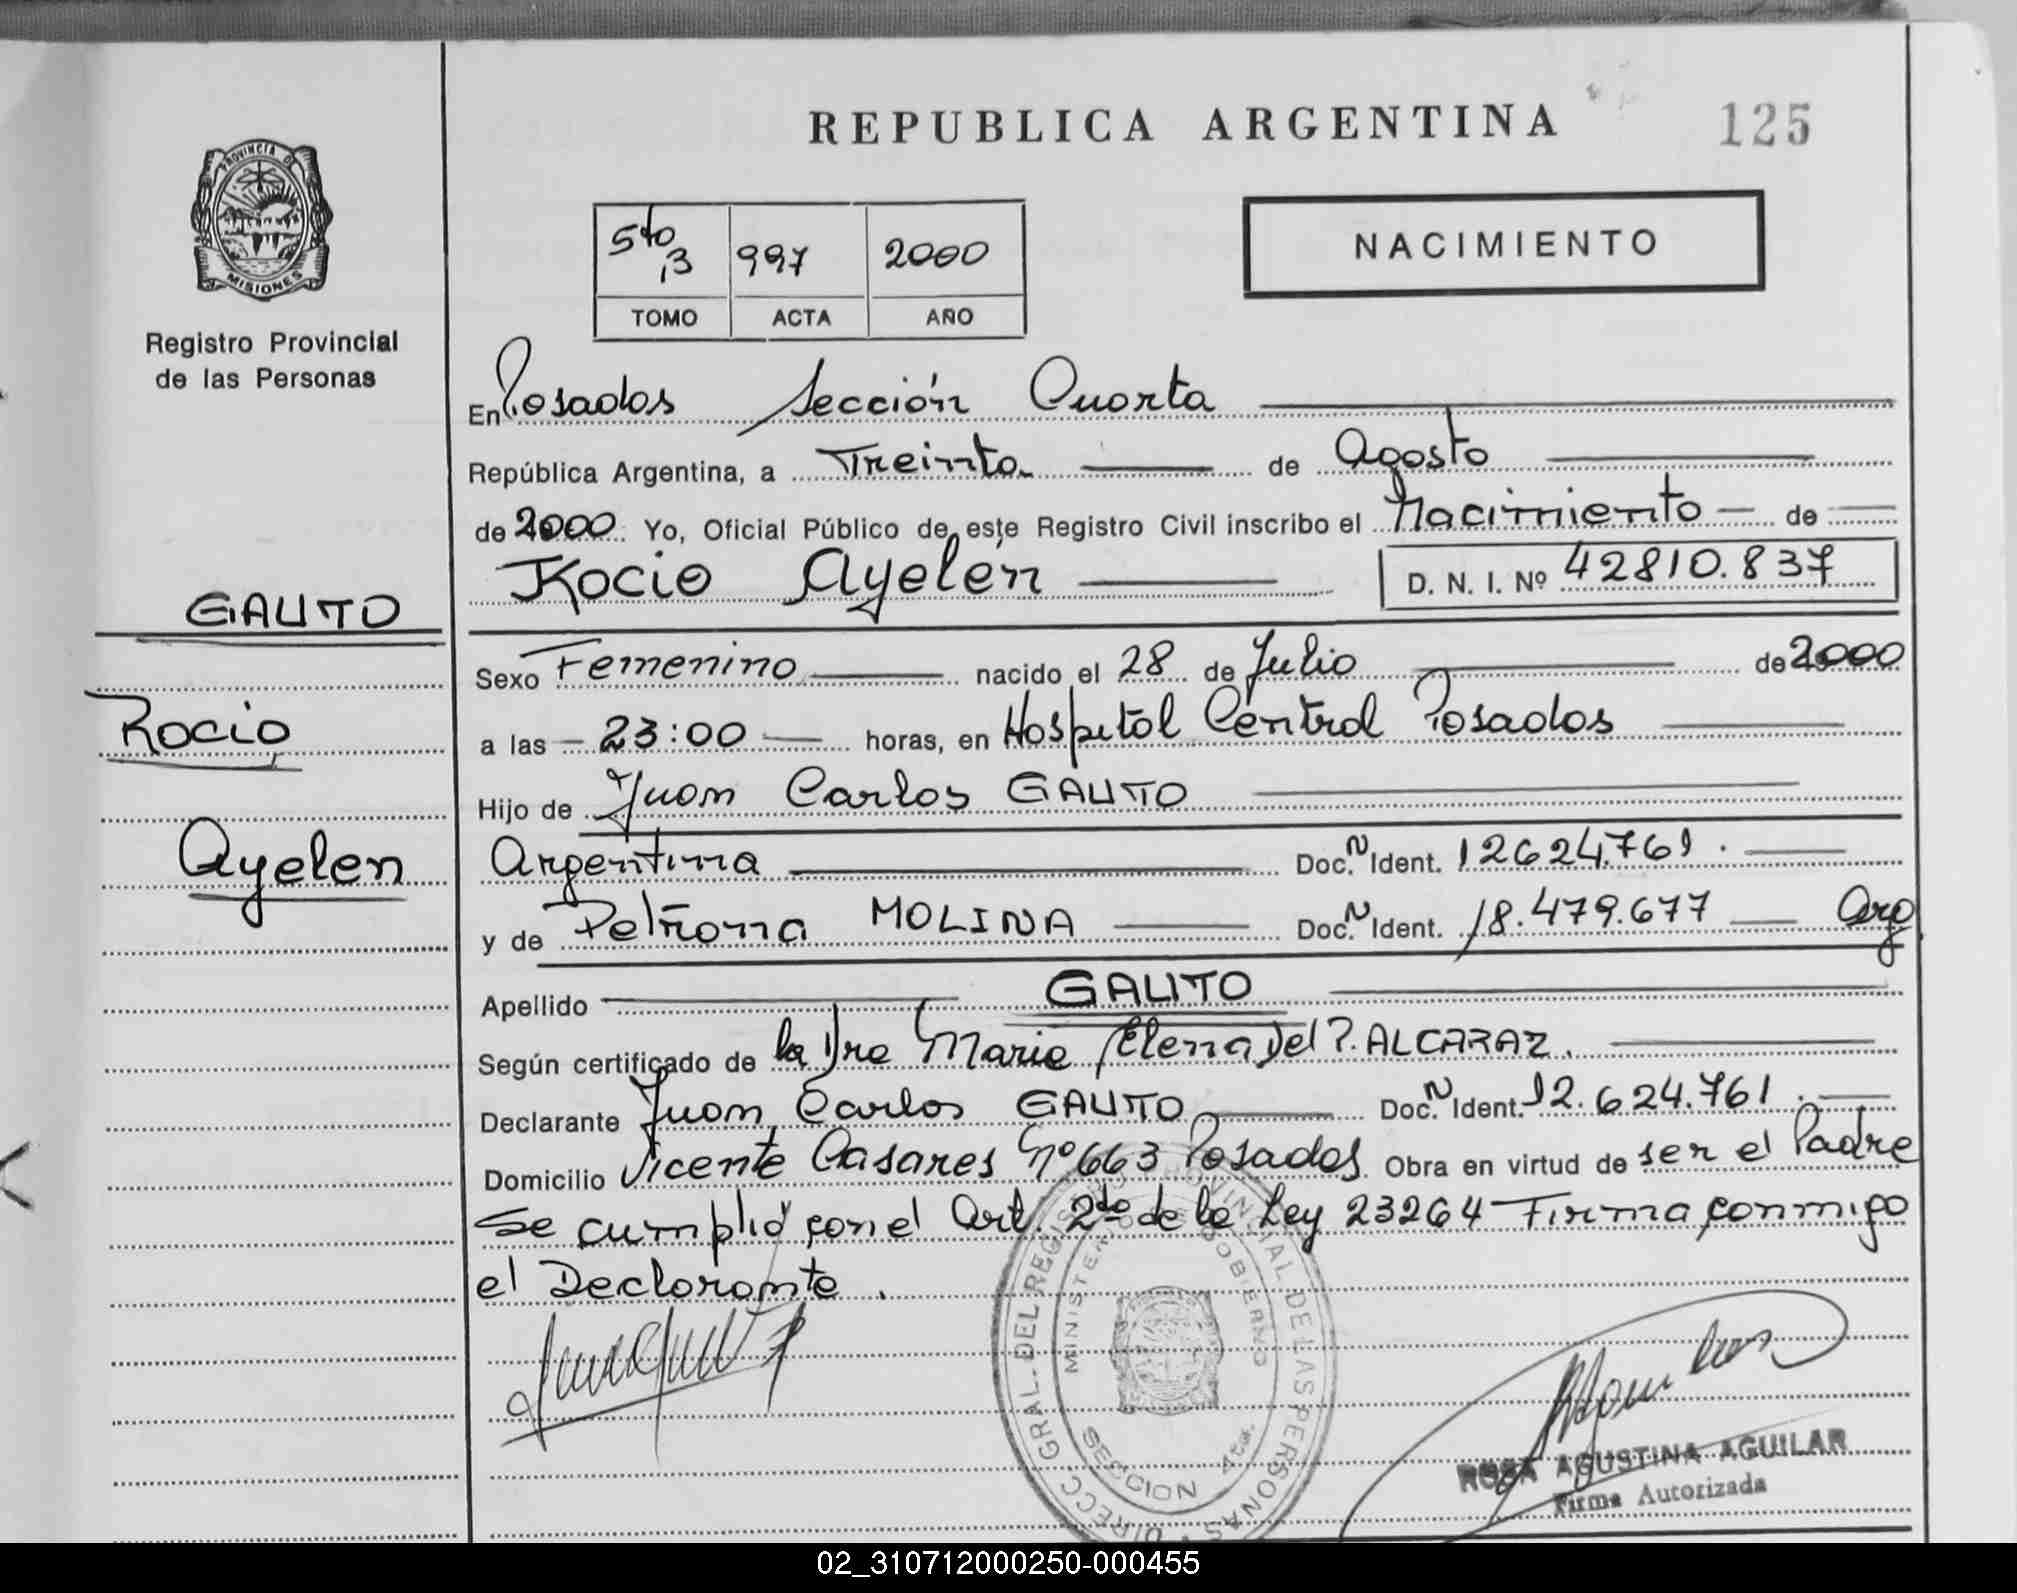 REPUBLICA ARGENTINA
125
PROVINCIA DE
MISIONES
Registro Provincial
de las Personas
5to 13 997 2000
TOMO ACTA AÑO
NACIMIENTO
En Posadas Sección Cuarta
República Argentina, a Treinta de Agosto
de 2000 Yo, Oficial Público de este Registro Civil inscribo el Nacimiento de
Rocio Ayelén D. N. I. Nº 42810.837
GAUTO
Rocio
Ayelen
Sexo Femenino nacido el 28 de Julio de 2000
a las 23:00 horas, en Hospital Central Posadas
Hijo de Juan Carlos GAUTO
Argentina Doc. N Ident. 12624.761.
y de Petrona MOLINA Doc. N Ident. 18.479.677 Arg
Apellido GAUTO
Según certificado de la Dra Maria Elena Del P. ALCARAZ.
Declarante Juan Carlos GAUTO Doc. N Ident. 12.624.761.
Domicilio Vicente Casares Nº 663 Posadas. Obra en virtud de ser el Padre
Se cumplió con el Art. 2do de la Ley 23264 Firma conmigo
el Declarante.
DIRECC GRAL. DEL REGISTRO PROVINCIAL DE LAS PERSONAS
MINISTERIO DE GOBIERNO
SECCION 4ta.
ROSA AGUSTINA AGUILAR
Firma Autorizada
02_310712000250-000455